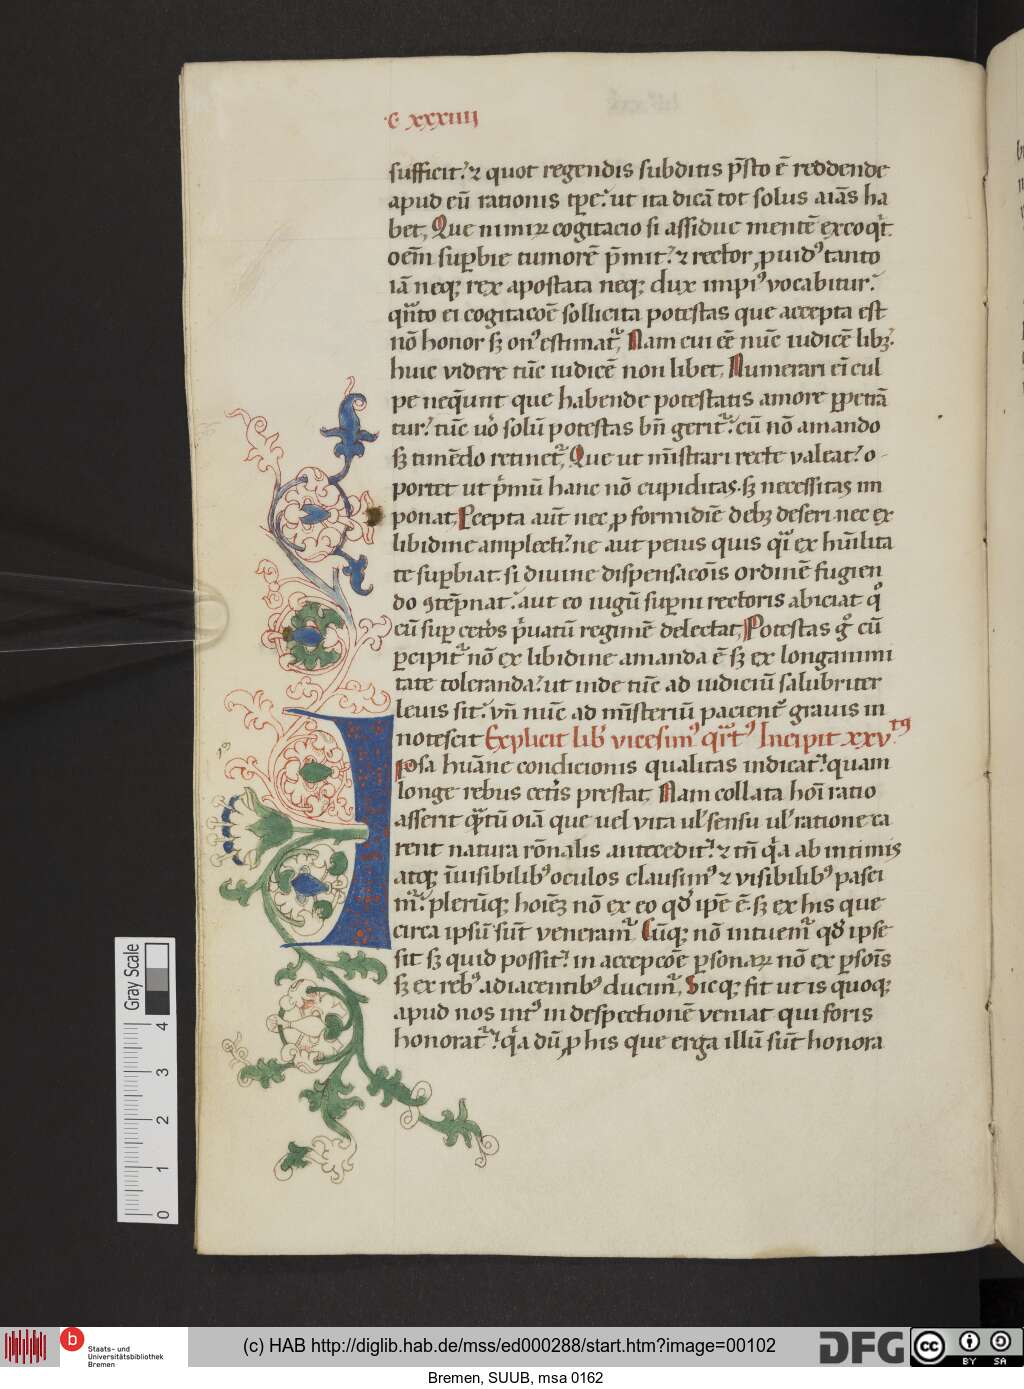 c xxxiiii
sufficit. ⁊ quot regendis subditis p̄sto ē reddende
apud eū rationis tꝑe. ut ita dicā tot solus aiās ha
bet. Que nimiꝝ cogitacio si assidue mentē excoqͥt.
oēm suꝑbie tumorē p̄mit. ⁊ rector ꝓuidꝰ tanto
iā neqꝫ rex apostata neqꝫ dux impiꝰ vocabitur.
qn̄to ei cogitacoē sollicita potestas que accepta est
nō honor sꝫ onꝰ estimat᷑. Nam cui eē nūc iudicē libꝫ.
huic videre tūc iudicē non libet. Numerari ei cul
pe neq̄unt que habende potestatis amore ꝑpetrā
tur. tūc uo solū potestas bn̄ gerit᷑. cū nō amando
sꝫ timēdo retinet᷑. Que ut mīstrari recte valeat. o-
portet ut pͥmū hanc nō cupiditas. sꝫ necessitas im
ponat. Pcepta aūt nec ꝓ formidīe debꝫ deseri. nec ex
libidine amplecti. ne aut peius quis qͣi ex humilita
te suꝑbiat. si diuine dispensacoīs ordinē fugien
do ꝯtēpnat. aut eo iugū suꝑni rectoris abiciat qͦ
cū suꝑ cetōs pͥuatū regimē delectat. Potestas gͦ cū
ꝑcipit᷑ nō ex libidine amanda ē sꝫ ex longanimi
tate toleranda. ut inde tūc ad iudiciū salubriter
leuis sit. vn̄ nūc ad mīsteriū pacient᷑ grauis in
notescit Explicit lib vicesimꝰ qͣrtꝰ Incipit xxvtꝰ
Iposa humāne condicionis qualitas indicat. quam
longe rebus cetis prestat. Nam collata hoī ratio
asserit qͣtū oīa que uel vita ul sensu ul ratione ca
rent natura rōnalis antecedit. ⁊ tn̄ qͥa ab intimis
atqꝫ īuisibilibꝰ oculos clausimꝰ ⁊ visibilibꝰ pasci
m᷑. plerūqꝫ hoīeꝫ nō ex eo qd ipē ē. sꝫ ex his que
circa ipsū sūt veneram᷑. Cūqꝫ nō intuem᷑ qd ipse
sit sꝫ quid possit. in accepcoē ꝑsonaꝝ nō ex ꝑsoīs
sꝫ ex rebꝰ adiacentibꝰ ducim᷑. Sicqꝫ fit ut is quoqꝫ
apud nos intꝰ in despectionē veniat qui foris
honorat᷑. qͥa dū ꝓ his que erga illū sūt honora
Gray Scale
4
3
2
1
0
b
Staats- und
Universitätsbibliothek
Bremen
(c) HAB http://diglib.hab.de/mss/ed000288/start.htm?image=00102
DFG
cc
BY SA
Bremen, SUUB, msa 0162